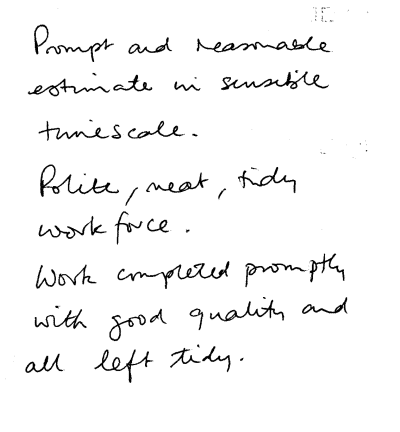 Prompt and reasonable
estimate in sensible
timescale.
Polite, neat, tidy
work force.
Work completed promptly
with good quality and
all left tidy.